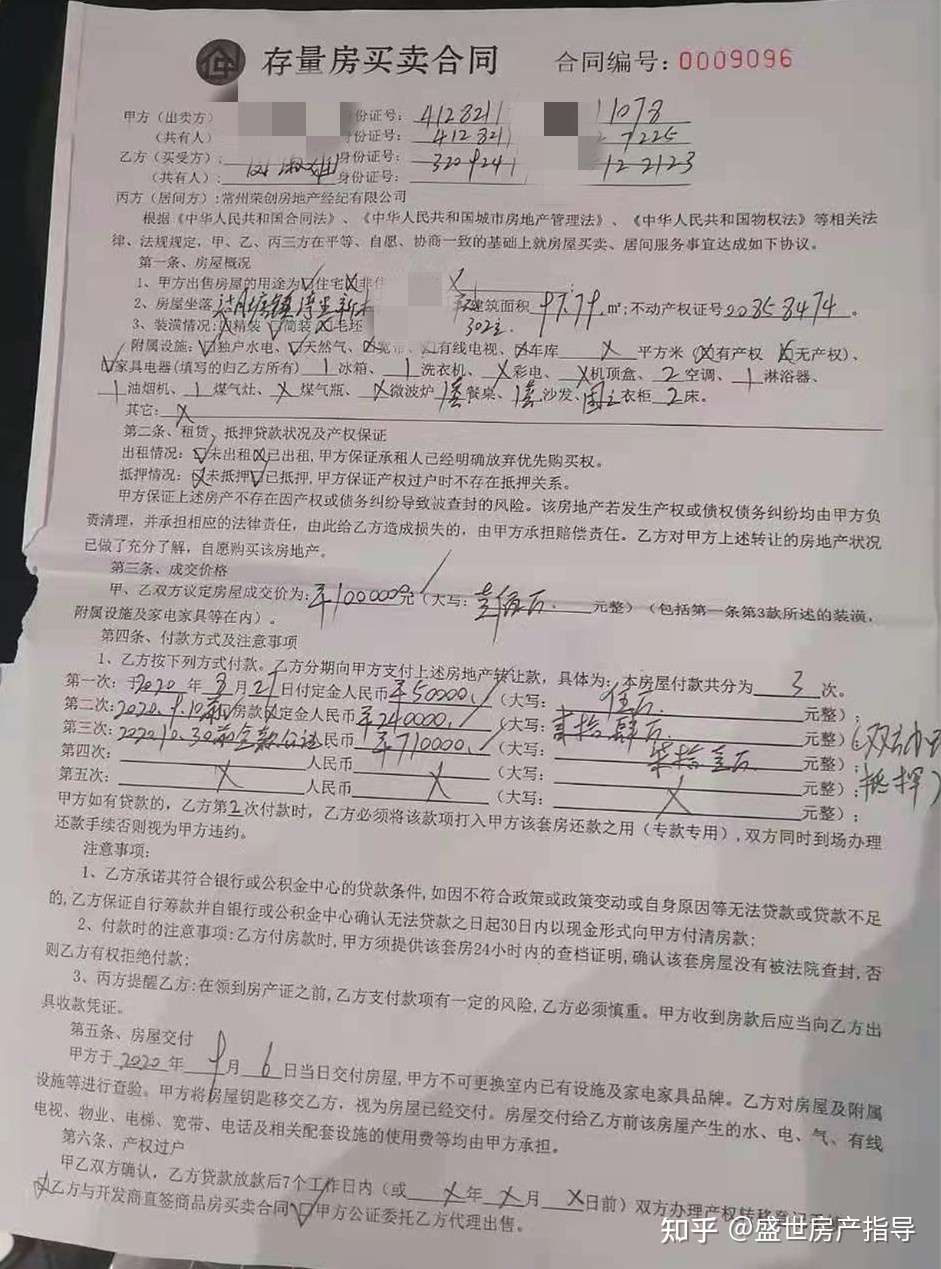 存量房买卖合同 合同编号：0009096
甲方（出卖方） 身份证号：412821 1078
（共有人） 身份证号：412821 7225
乙方（买受方）： 身份证号：320924 122123
（共有人）： 身份证号：
丙方（居间方）：常州荣创房地产经纪有限公司
根据《中华人民共和国合同法》、《中华人民共和国城市房地产管理法》、《中华人民共和国物权法》等相关法
律、法规规定，甲、乙、丙三方在平等、自愿、协商一致的基础上就房屋买卖、居间服务事宜达成如下协议。
第一条、房屋概况
1、甲方出售房屋的用途为 住宅 非住
2、房屋坐落 302室 建筑面积 97.79 ㎡；不动产权证号 20858474 。
3、装潢情况： 精装 简装 毛坯
附属设施： 独户水电、 天然气、 宽带、 有线电视、 车库 X 平方米（ 有产权 无产权）、
家具电器（填写的归乙方所有） 1 冰箱、 1 洗衣机、 X 彩电、 X 机顶盒、 2 空调、 1 淋浴器、
1 油烟机、 1 煤气灶、 X 煤气瓶、 X 微波炉 1套 餐桌、 1套 沙发、 衣柜 2 床。
其它： X
第二条、租赁、抵押贷款状况及产权保证
出租情况： 未出租 已出租，甲方保证承租人已经明确放弃优先购买权。
抵押情况： 未抵押 已抵押，甲方保证产权过户时不存在抵押关系。
甲方保证上述房产不存在因产权或债务纠纷导致被查封的风险。该房地产若发生产权或债权债务纠纷均由甲方负
责清理，并承担相应的法律责任，由此给乙方造成损失的，由甲方承担赔偿责任。乙方对甲方上述转让的房地产状况
已做了充分了解，自愿购买该房地产。
第三条、成交价格
甲、乙双方议定房屋成交价为：¥100000元（大写：壹佰万 元整）（包括第一条第3款所述的装潢，
附属设施及家电家具等在内）。
第四条、付款方式及注意事项
1、乙方按下列方式付款。乙方分期向甲方支付上述房地产转让款，具体为：本房屋付款共分为 3 次。
第一次：于2020年8月21日付定金人民币¥50000. （大写：伍万 元整）；
第二次：2020.9.10前 房款 定金人民币¥240000. （大写：贰拾肆万 元整）；（双方办理
第三次：2020.10.30前 人民币¥710000. （大写：柒拾壹万 元整）； 抵押）
第四次： 人民币 （大写： 元整）；
第五次： X 人民币 X （大写： X 元整）；
甲方如有贷款的，乙方第2次付款时，乙方必须将该款项打入甲方该套房还款之用（专款专用），双方同时到场办理
还款手续否则视为甲方违约。
注意事项：
1、乙方承诺其符合银行或公积金中心的贷款条件，如因不符合政策或政策变动或自身原因等无法贷款或贷款不足
的，乙方保证自行筹款并自银行或公积金中心确认无法贷款之日起30日内以现金形式向甲方付清房款；
2、付款时的注意事项：乙方付房款时，甲方须提供该套房24小时内的查档证明，确认该套房屋没有被法院查封，否
则乙方有权拒绝付款；
3、丙方提醒乙方：在领到房产证之前，乙方支付款项有一定的风险，乙方必须慎重。甲方收到房款后应当向乙方出
具收款凭证。
第五条、房屋交付
甲方于 2020 年 9 月 6 日当日交付房屋，甲方不可更换室内已有设施及家电家具品牌。乙方对房屋及附属
设施等进行查验。甲方将房屋钥匙移交乙方，视为房屋已经交付。房屋交付给乙方前该房屋产生的水、电、气、有线
电视、物业、电梯、宽带、电话及相关配套设施的使用费等均由甲方承担。
第六条、产权过户
甲乙双方确认，乙方贷款放款后7个工作日内（或 X 年 X 月 X 日前）双方办理产权转移登记
乙方与开发商直签商品房买卖合同 甲方公证委托乙方代理出售。
知乎 @盛世房产指导